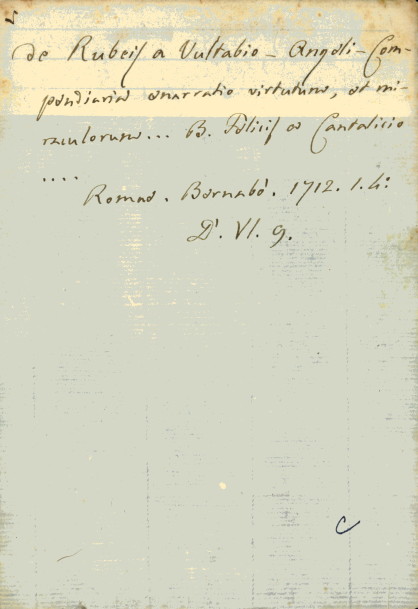 de Rubeis a Vultabio - Angeli - Com-
pendiaria enarratio virtutum, et mi-
raculorum... B. Felicis a Cantalicio
....
Romae. Bernabò. 1712. 1. 4:
D. VI. 9.
C